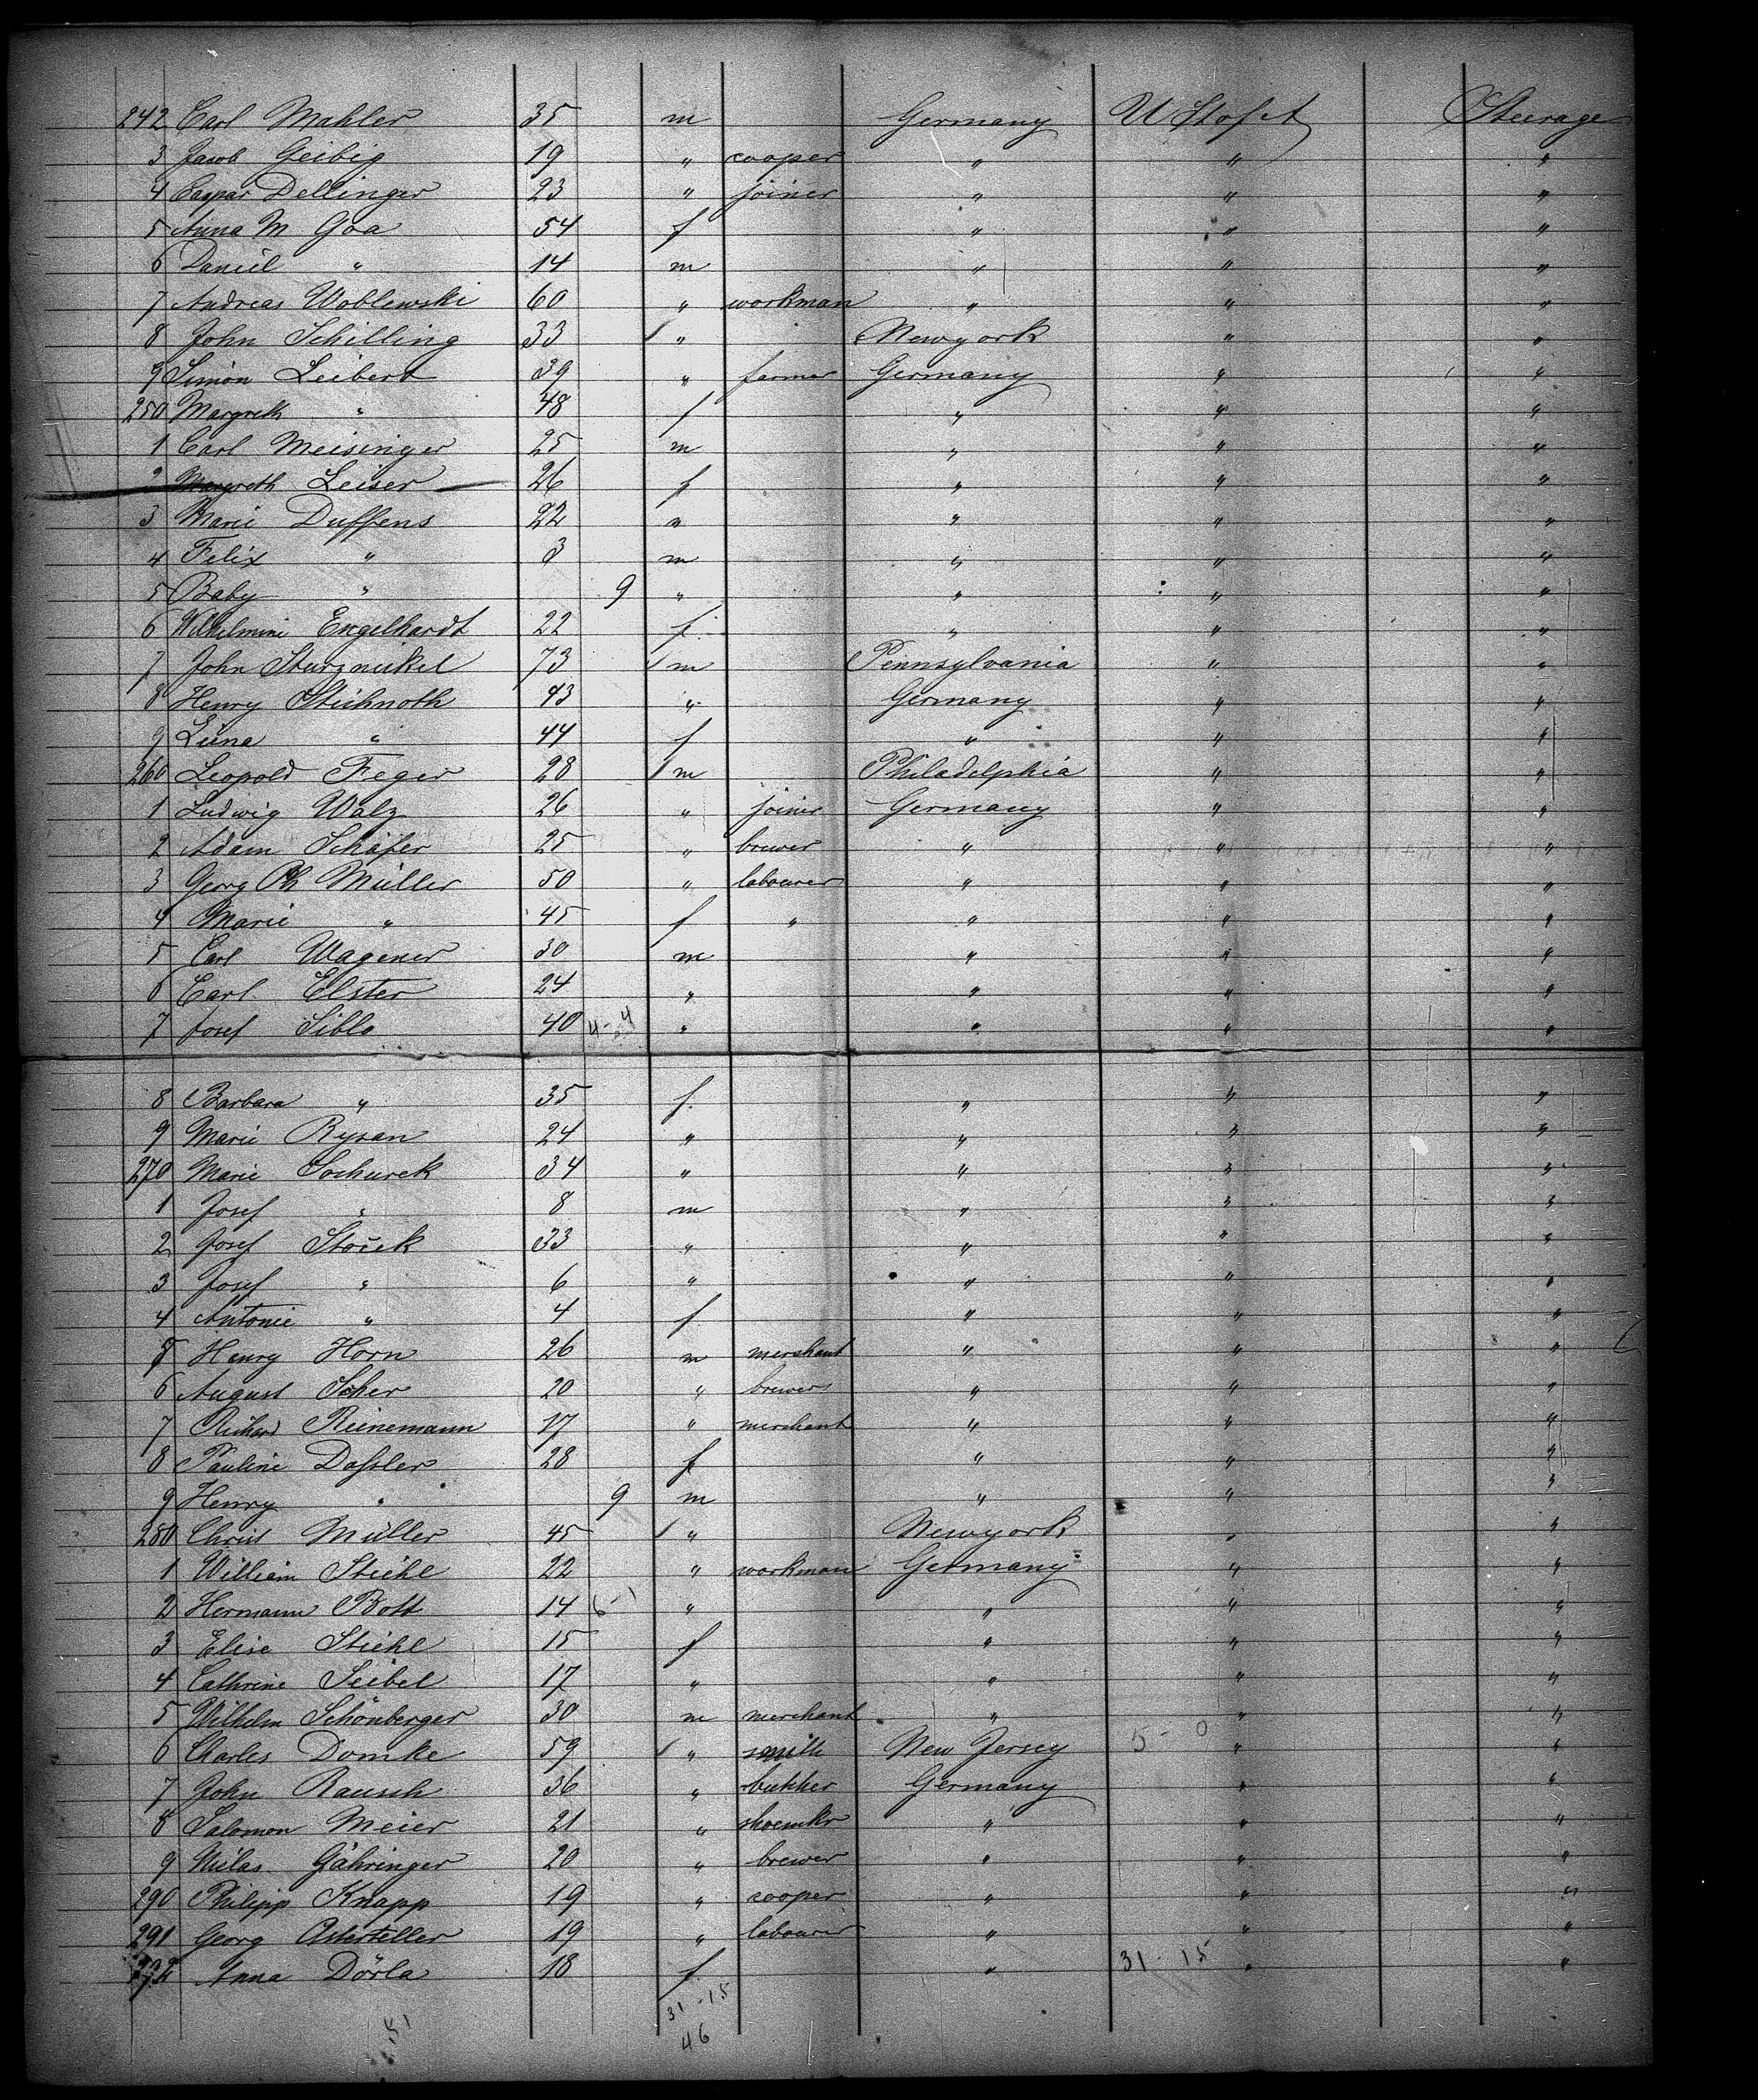 242 Carl Mahler 35 m Germany U St of A Steerage
3 Jacob Geibig 19 " cooper " " "
4 Caspar Dellinger 23 " joiner " " "
5 Anna M Goa 54 f " " "
6 Daniel " 14 m " " "
7 Andreas Woblewski 60 " workman " " "
8 John Schilling 33 " Newyork " "
9 Simon Leibert 39 " farmer Germany " "
250 Margreth " 48 f " " "
1 Carl Meisinger 25 m " " "
2 Margreth Leiser 26 f " " "
3 Marie Duffens 22 " " " "
4 Felix " 3 m " " "
5 Baby " 9 " " " "
6 Wilhelmine Engelhardt 22 f " " "
7 John Sturznickel 73 m Pennsylvania " "
8 Henry Stichnoth 43 " Germany " "
9 Liina " 44 f " " "
260 Leopold Feger 28 m Philadelphia " "
1 Ludwig Walz 26 " joiner Germany " "
2 Adam Schäfer 25 " brewer " " "
3 Georg Ph Müller 50 " labourer " " "
4 Marie " 45 f " " " "
5 Carl Wagener 30 m " " "
6 Carl Elster 24 " " " "
7 Josef Sibla 40 4-4 " " " "
8 Barbara " 35 f. " " "
9 Marie Rysan 24 " " " "
270 Marie Sochurek 34 " " " "
1 Josef " 8 m " " "
2 Josef Stoček 33 " " " "
3 Josef " 6 " " " "
4 Antonie " 4 f " " "
5 Henry Horn 26 m merchant " " "
6 August Scher 20 " brewer " " "
7 Richard Reinemann 17 " merchant " " "
8 Pauline Dassler 28 f " " "
9 Henry " 9 m " " "
280 Christ Müller 45 " Newyork " "
1 William Stiehl 22 " workman Germany " "
2 Hermann Bott 14 6-1 " " " "
3 Elise Stiehl 15 f " " "
4 Cathrine Seibel 17 " " " "
5 Wilhelm Schönberger 30 m merchant " " "
6 Charles Domke 59 " smith New Jersey 5-0 " "
7 John Rausch 36 " butcher Germany " "
8 Salomon Meier 21 " shoemkr " " "
9 Gähringer 20 " brewer " " "
290 Philipp Knapp 19 " cooper " " "
291 Georg 19 " labourer " " "
292 Anna Dörla 18 f " 31-15 " "
31-15
51 46